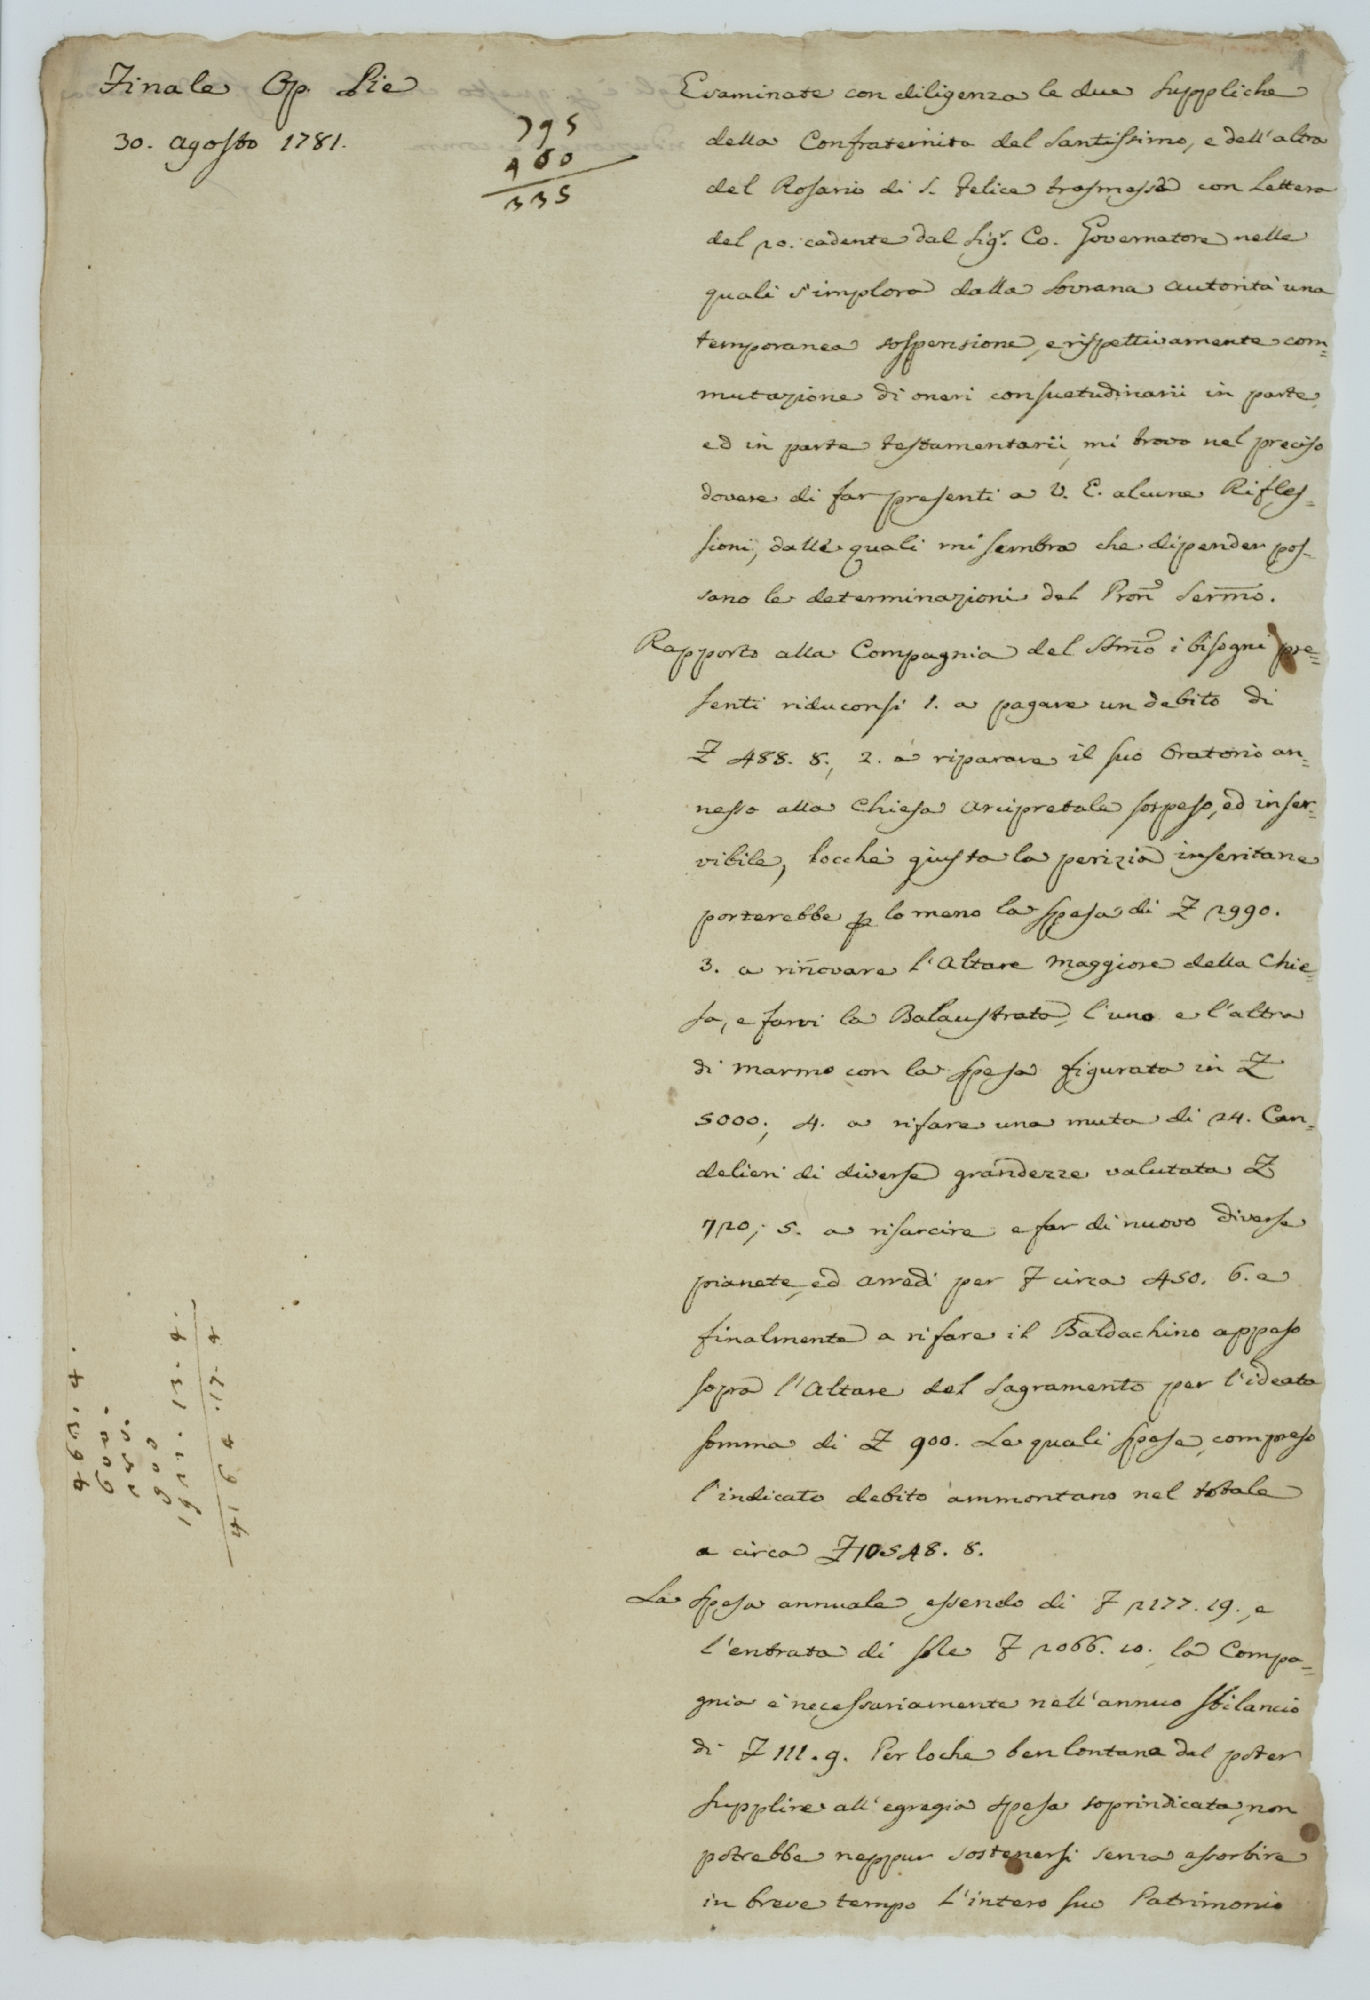 Finale Op. Pie
30. agosto 1781.
795
460
335
Esaminate con diligenza le due Suppliche
della Confraternita del Santissimo, e dell'altra
del Rosario di S. Felice trasmesse con Lettera
del 20. cadente dal Sigr. Co. Governatore nelle
quali s'implora dalla Sovrana autorità una
temporanea sospensione, e rispettivamente com=
mutazione di oneri consuetudinarii in parte,
ed in parte testamentarii, mi trovo nel preciso
dovere di far presenti a V. E. alcune Rifles=
sioni, dalle quali mi sembra che dipender pos=
sano le determinazioni del Pron̄e Serm̄o.
Rapporto alla Compagnia del Sm̄o i bisogni pre=
senti riduconsi 1. a pagare un debito di
£ 488. 8., 2. a riparare il suo Oratorio an=
nesso alla Chiesa Arcipretale sospeso, ed inser=
vibile, locchè giusta la perizia inseritane
porterebbe p lo meno la spesa di £ 2990.
3. a rin̄ovare l'Altare Maggiore della Chie=
sa, e farvi la Balaustrata, l'uno e l'altra
di marmo con la spesa figurata in £
5000., 4. a rifare una muta di 24. Can=
delieri di diverse grandezze valutata £
720; 5. a risarcire e far di nuovo diverse
pianete, ed arredi per £ circa 450. 6. e
finalmente a rifare il Baldachino appeso
sopra l'Altare del Sagramento per l'ideata
somma di £ 900. Le quali spese, compreso
l'indicato debito ammontano nel totale
a circa £ 10548. 8.
La spesa annuale essendo di £ 2177. 19., e
l'entrata di sole £ 2066. 10. la Compa=
gnia è necessariamente nell'annuo sbilancio
di £ 111. 9. Per loche ben lontana dal poter
supplire all'egregia spesa soprindicata, non
potrebbe neppur sostenersi senza assorbire
in breve tempo l'intero suo Patrimonio